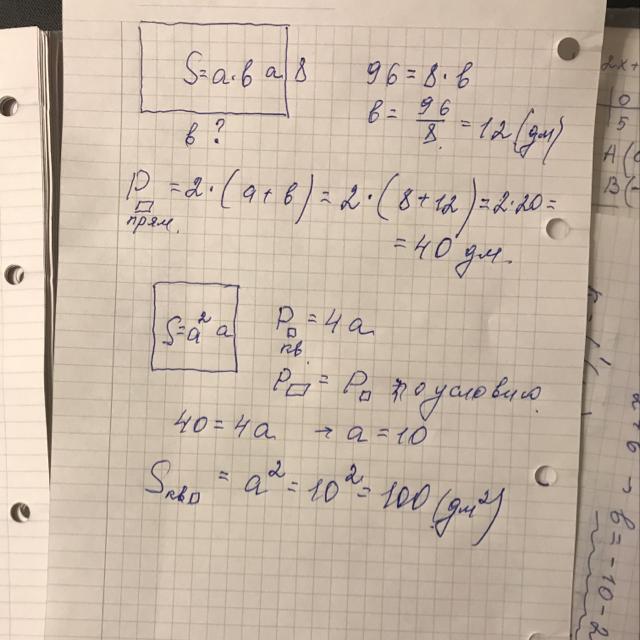 S=a·в a 8
в ?
96=8·в
в= 96/8 =12(дм)
P▭ =2·(a+в)=2·(8+12)=2·20=
прям.
=40 дм.
S=a² a
P□=4a
кв.
P▭=P□ по условию.
40=4a → a=10
Sкв□ = a²=10²=100(дм²)
2x+
0
5
A(
B(
в=-10-2